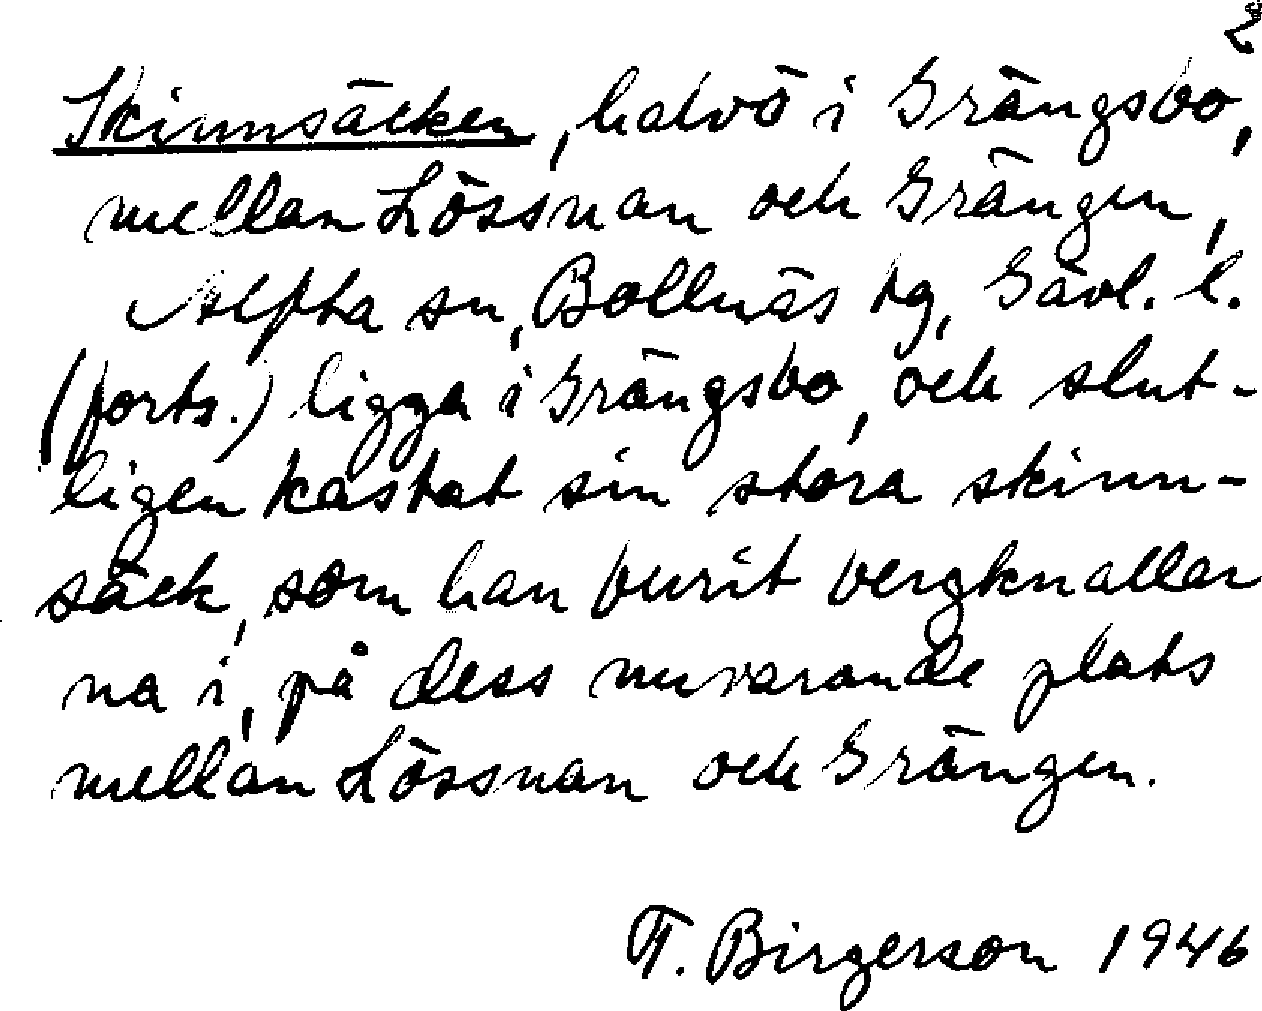 2
Skinnsäcken, halvö i Grängsbo,
mellan Lössnan och Grängen,
Alfta sn, Bollnäs tg, Gävl. l.
(forts.) ligga i Grängsbo, och slut-
ligen kastat sin stora skinn-
säck, som han burit bergknallar
na i, på dess nuvarande plats
mellan Lössnan och Grängen.
T. Birgerson 1946